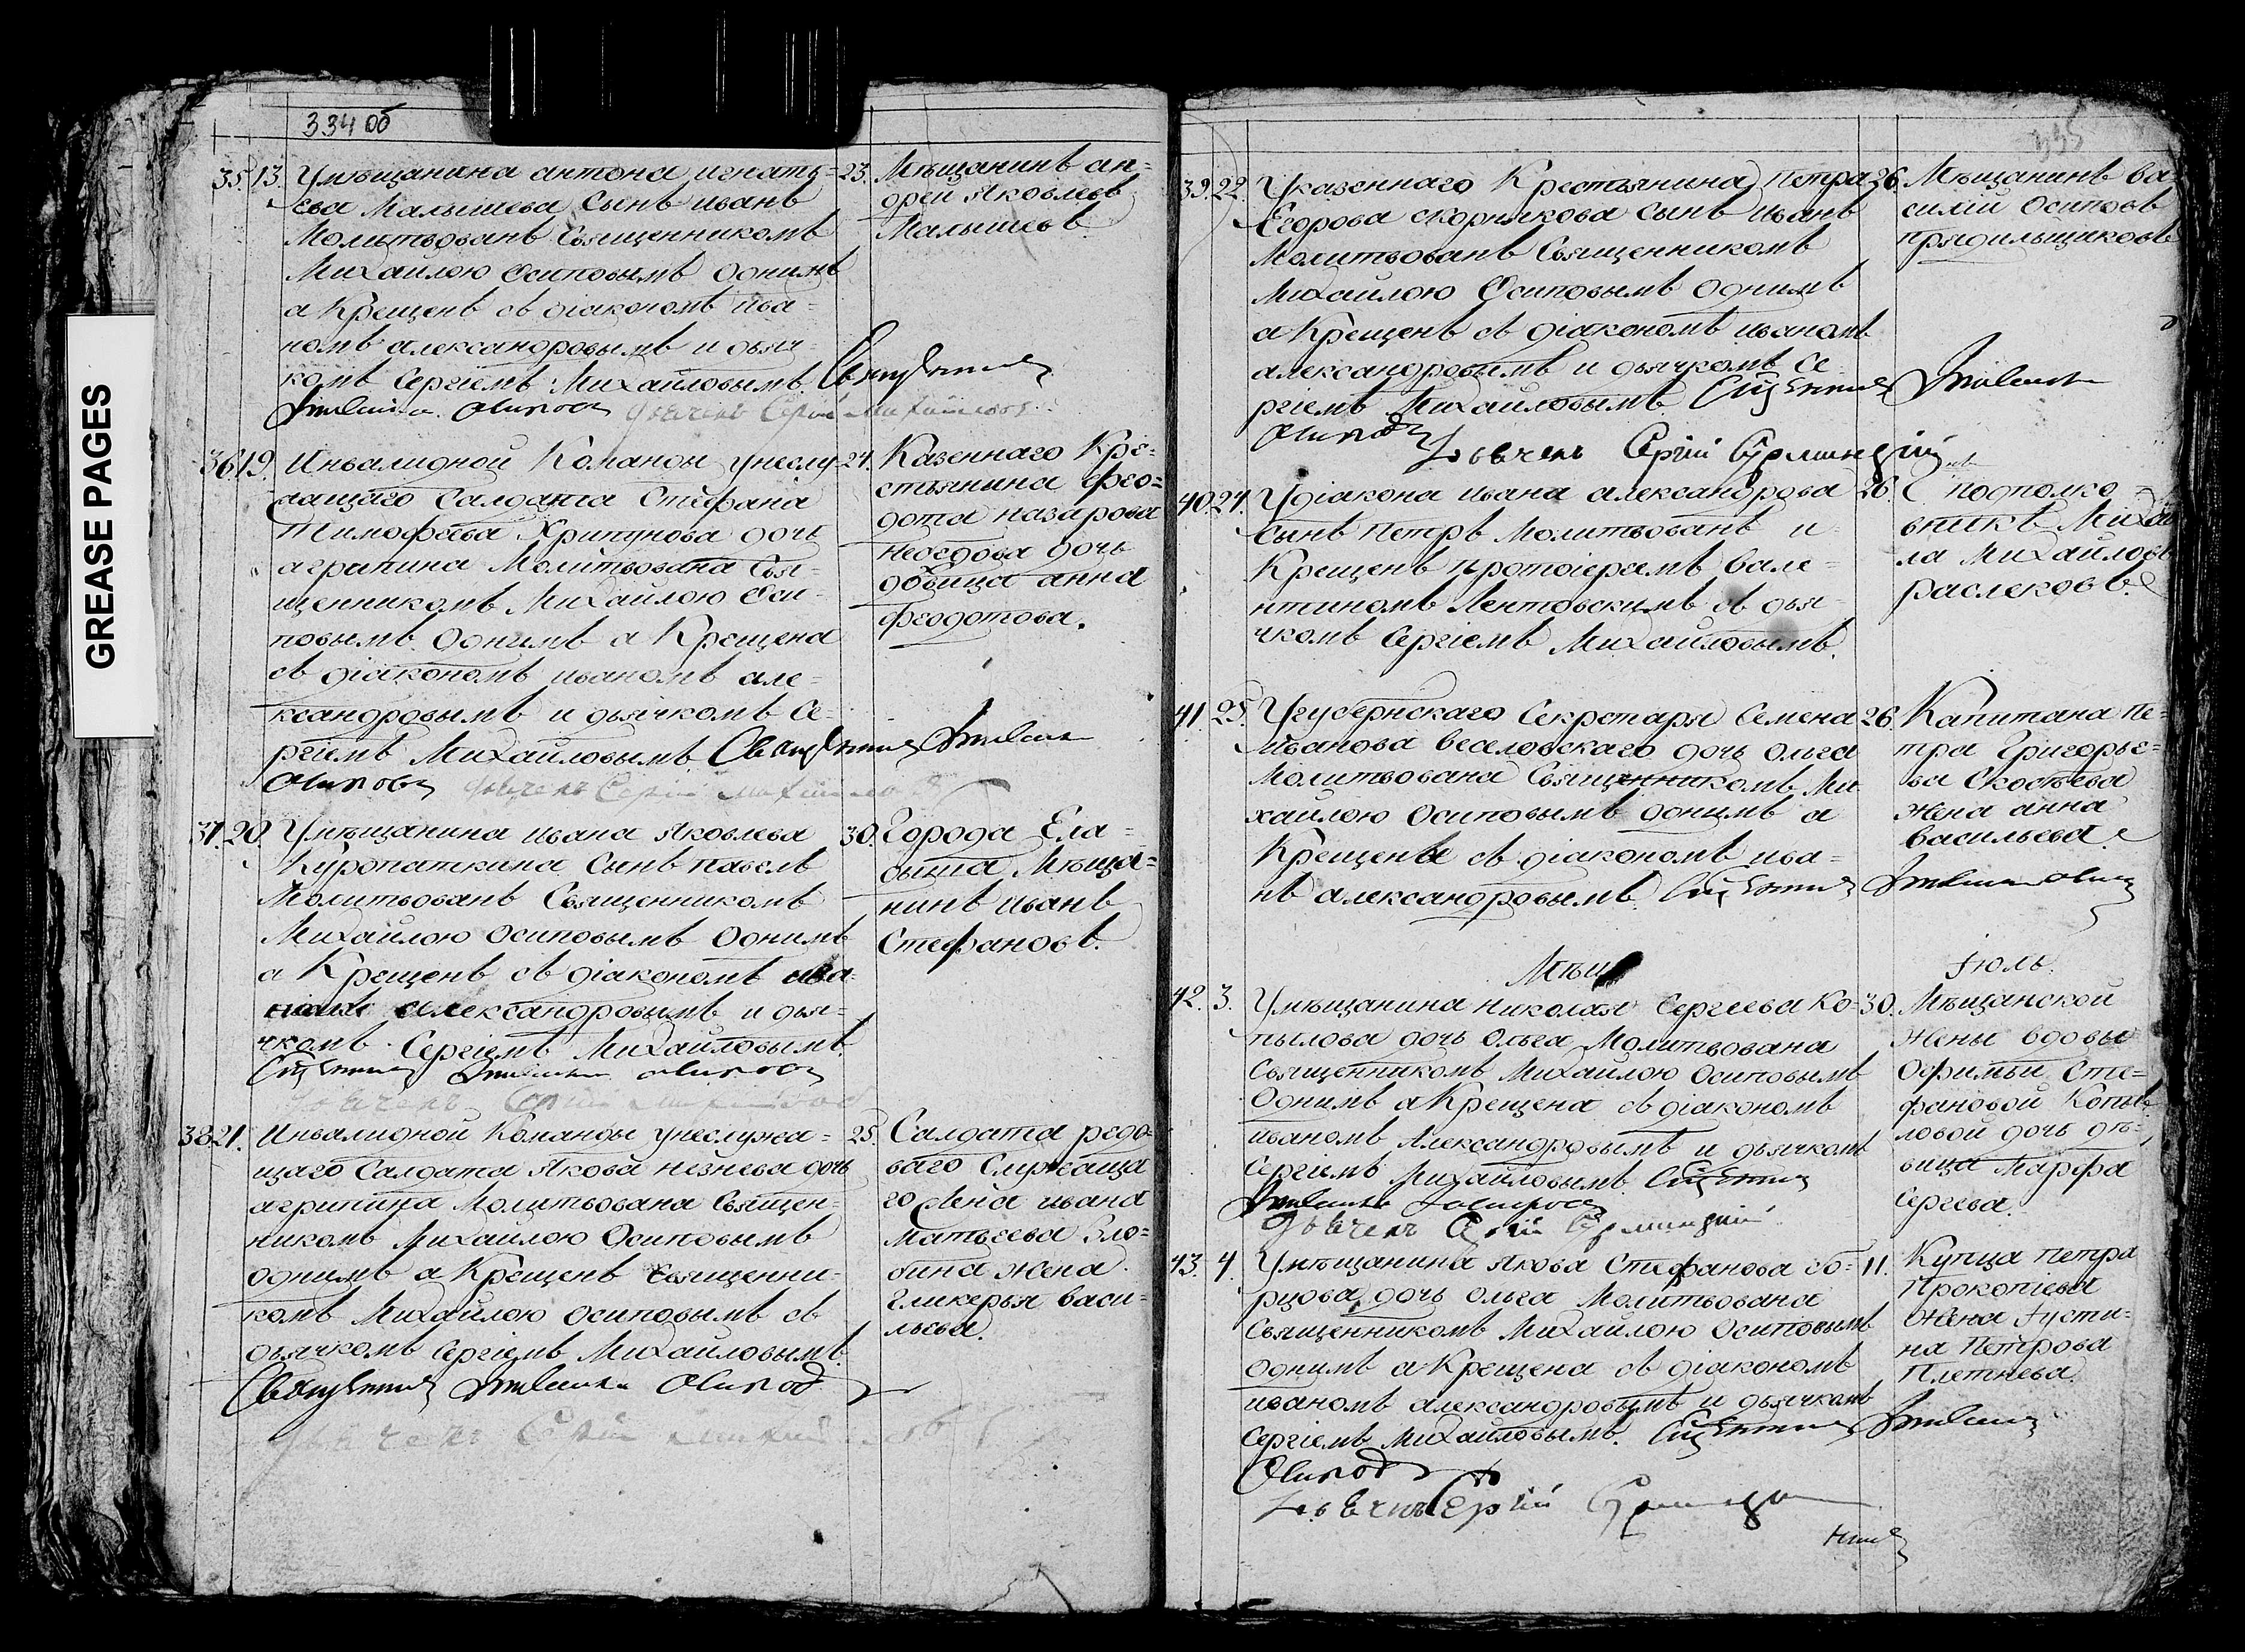 334 об
35. 13. У мѣщанина антона игнать=
ева Малышева сынъ иванъ
Молитвованъ Священникомъ
Михаилою Осиповымъ однимъ
а Крещенъ съ діакономъ ива-
номъ александровымъ и дьяч-
комъ Сергіемъ Михайловымъ. Священникъ
Михаилъ Осиповъ дьячекъ Сергій Михайловъ
23. Мѣщанинъ ан=
дрей Яковлевъ
Малышевъ.
36. 19. Инвалидной Команды у неслу-
жащаго Салдата Стефана
Тимофеева Хрипунова дочь
агрипина Молитвована Свя-
щенникомъ Михайлою Оси-
повымъ однимъ а Крещена
съ діакономъ иваномъ але-
ксандровымъ и дьячкомъ Се-
ргіемъ Михайловымъ. Священникъ Михаилъ
Осиповъ дьячекъ Сергій Михайловъ
24. Казеннаго Кре-
стьянина Фео=
дота назарова
дочь
девица анна
феодотова.
37. 20. У мѣщанина ивана Яковлева
Куропаткина Сынъ павелъ
Молитвованъ Священникомъ
Михайлою Осиповымъ Однимъ
а Крещенъ съ діакономъ ива-
номъ александровымъ и дья-
чкомъ Сергіемъ Михайловымъ.
Священникъ Михаилъ Осиповъ
дьячекъ Сергій
30. Города Ела-
быга Мѣща=
нинъ иванъ
Стефановъ.
38. 21. Инвалидной Команды у неслужа=
щаго Салдата Якова незнева дочь
агрипина Молитвована Священ-
никомъ Михайлою Осиповымъ
однимъ а Крещенъ Священни-
комъ Михайлою осиповымъ съ
дьячкомъ Сергіемъ Михайловымъ.
Священникъ Михаилъ Осиповъ
дьячекъ Сергій
25. Салдата редо-
ваго Служаща
го ивана
Матвеева Зло-
бина жена
гликерья васи-
льева.
335
39. 22. У казеннаго Крестьянина Петра
Егорова скорнякова сынъ иванъ
Молитвованъ Священникомъ
Михайлою Осиповымъ Однимъ
а Крещенъ съ діакономъ иваномъ
александровымъ и дьячкомъ Се-
ргіемъ Михайловымъ. Священникъ Михаилъ
Осиповъ
Дьячекъ Сергій
26. Мѣщанинъ ва
силій осиповъ
прядильщиковъ
40. 24. У діакона ивана александрова
сынъ петръ Молитвованъ и
Крещенъ протоіерамъ Вале-
нтиномъ Лентовскимъ съ дья-
чкомъ Сергіемъ Михайловымъ.
26. подполко-
вникъ Михаи
ла Михайловъ
раслековъ.
41. 25. У губернскаго Секретаря Семена
Иванова веселовскаго дочь Ольга
Молитвована Священникомъ Ми
хайлою Осиповымъ однимъ а
Крещена съ діакономъ ива=
нъ александровымъ. Священникъ Михаилъ Осиповъ
26. Капитана пе-
тра Григорье=
ва
жена анна
васильева.
Мѣць іюль.
42. 3. У мѣщанина николая Сергеева Ко-
пылова дочь Ольга Молитвована
Священникомъ Михайлою Осиповымъ
Однимъ а Крещена съ діакономъ
иваномъ Александровымъ и дьячкомъ
Сергіемъ Михайловымъ. Священникъ
Михаилъ Осиповъ
дьячекъ Сергій
30. Мѣщанской
жены вдовы
Офимьи Сте-
фановой Копы-
ловой дочь дѣ-
вица Марфа
Сергева.
43. 4. У мѣщанина Якова Стефанова
дочь Ольга Молитвована
Священникомъ Михайлою Осиповымъ
однимъ а Крещена съ діакономъ
иваномъ александровымъ и дьячкомъ
Сергіемъ Михайловымъ. Священникъ Михаилъ
Осиповъ
Дьячекъ Сергій
11. Купца петра
Прокопіева
жена Іусти-
на Петрова
Плетнева.
GREASE PAGES